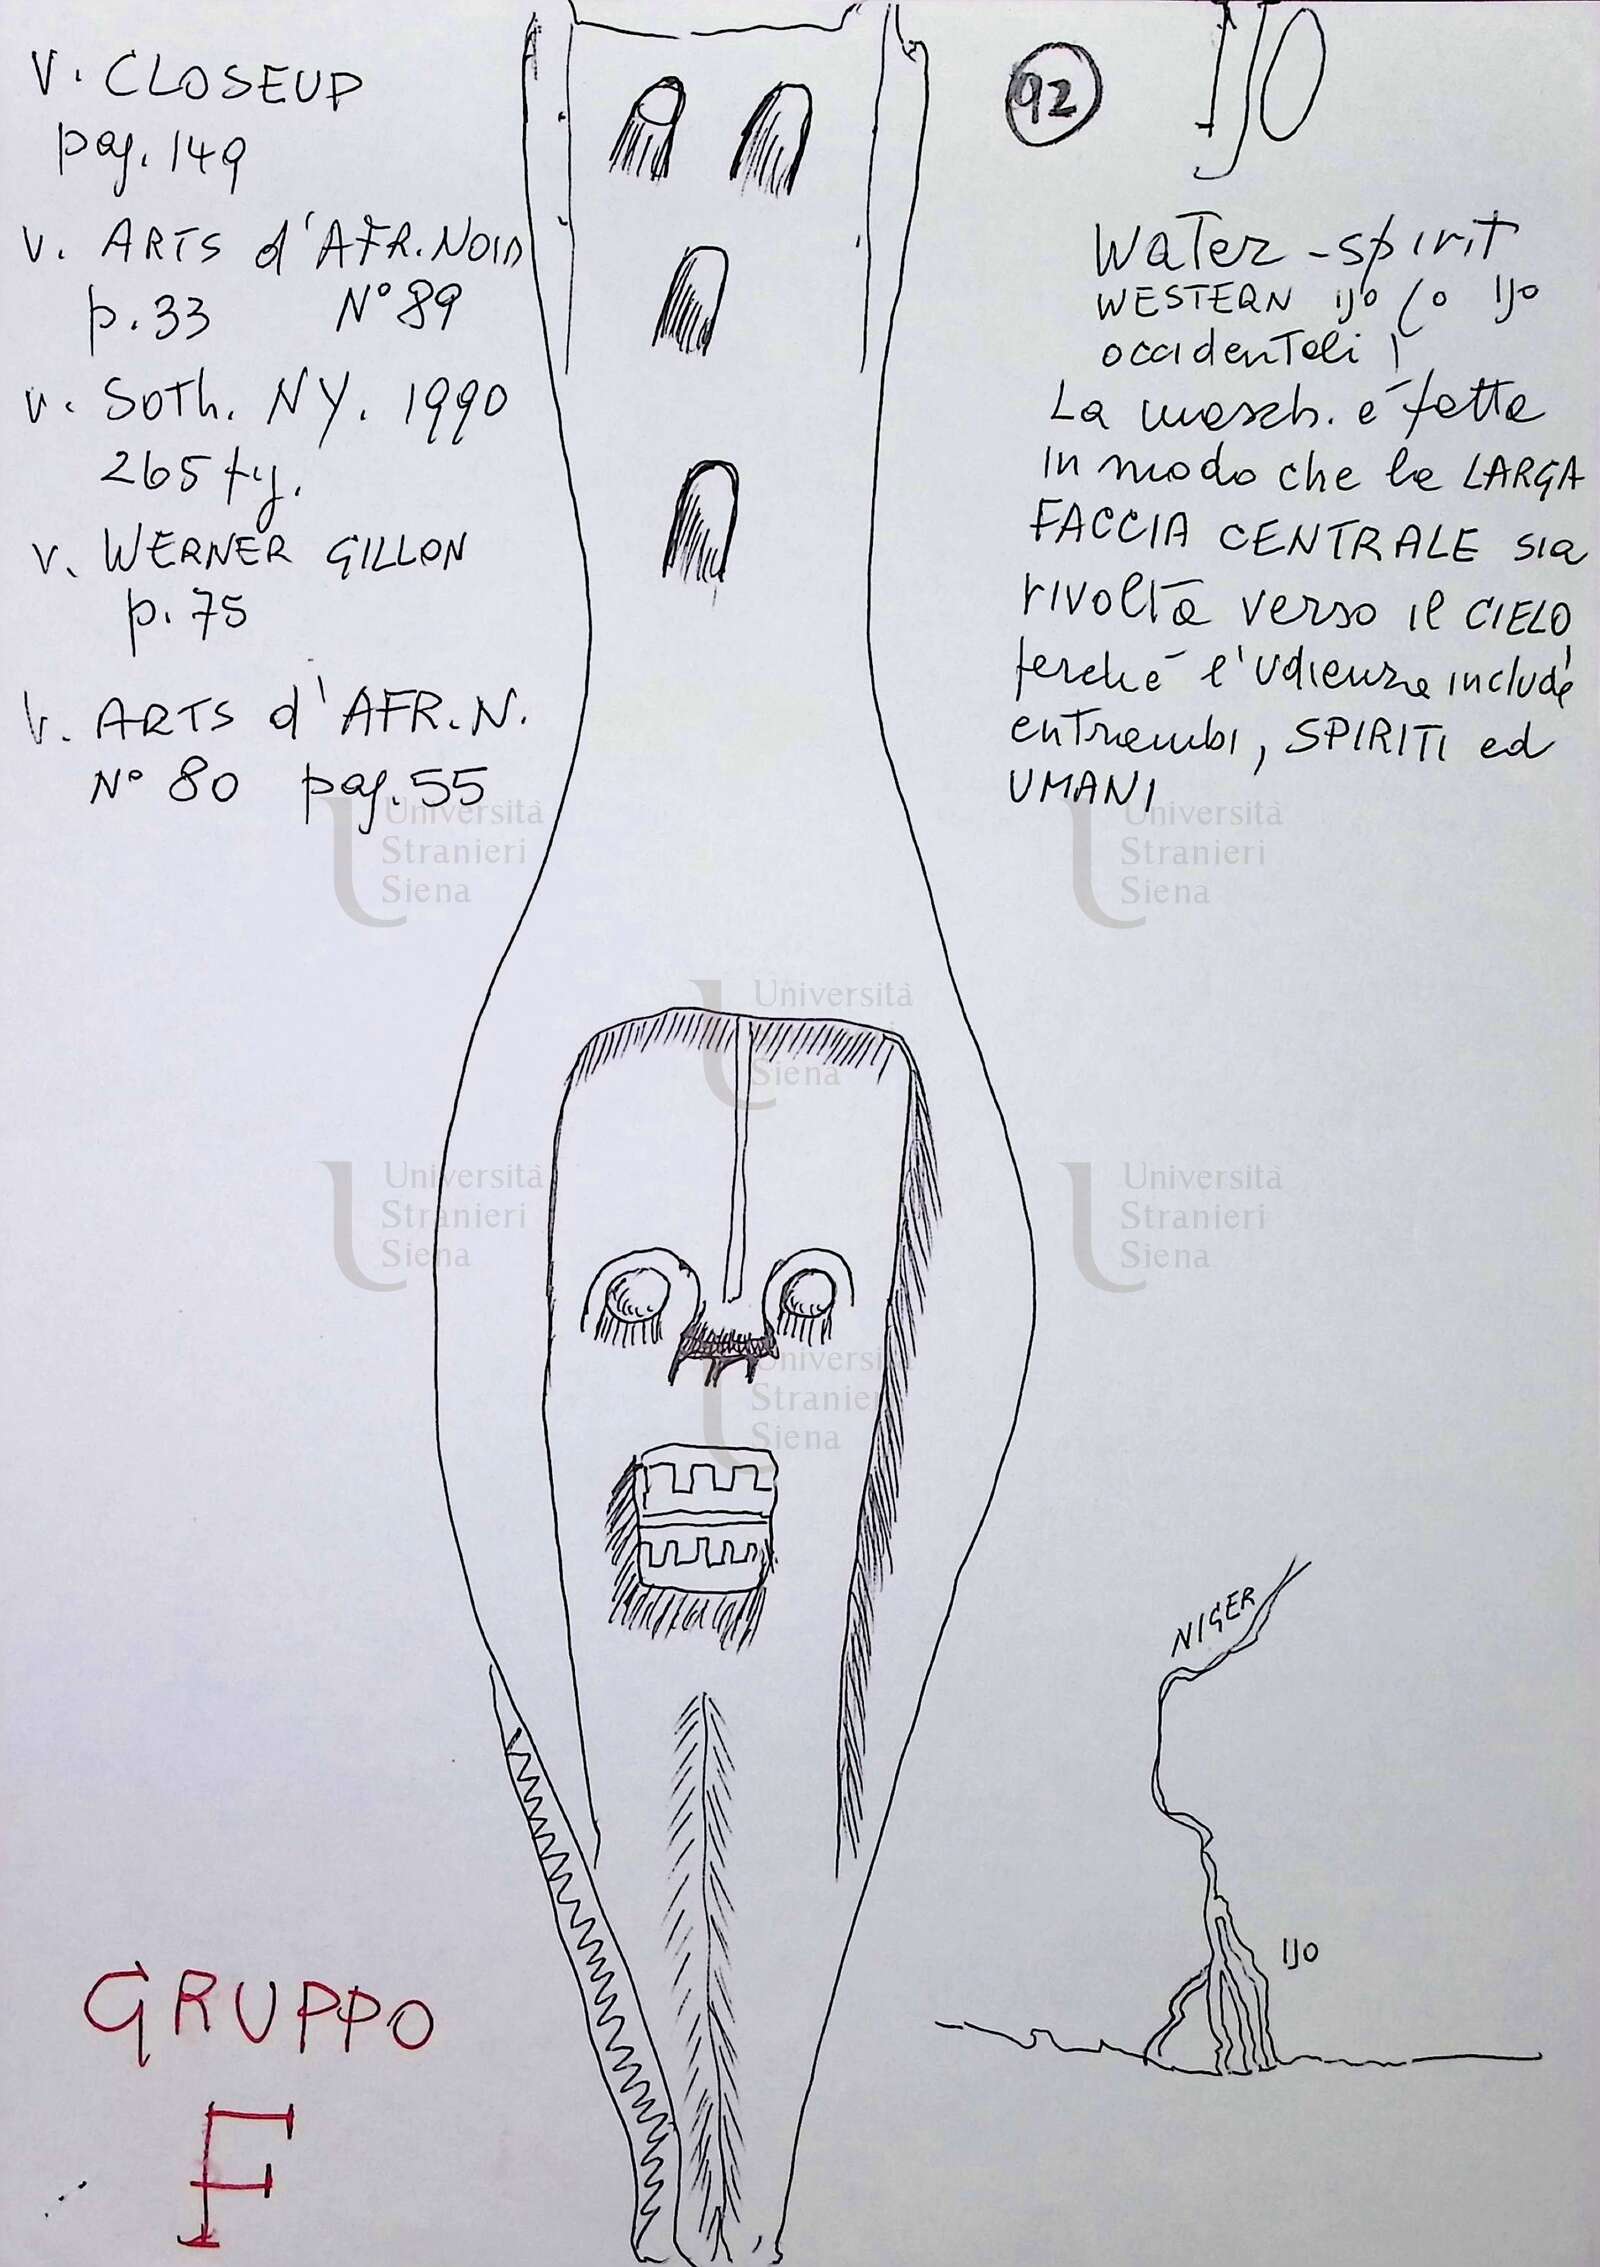 V. CLOSEUP
pag. 149
V. ARTS d'AFR. NOIR
p. 33 N° 89
V. SOTH. NY. 1990
265 fg.
V. WERNER GILLON
p. 75
V. ARTS d'AFR. N.
N° 80 pag. 55
92
IJO
Water-spirit
WESTERN IJO (o IJO
occidentali)
La masch. é fatta
in modo che la LARGA
FACCIA CENTRALE sia
rivolta verso il CIELO
perché l'udienza include
entrambi, SPIRITI ed
UMANI
Università
Stranieri
Siena
Università
Stranieri
Siena
Università
Siena
Università
Stranieri
Siena
Università
Stranieri
Siena
Università
Stranieri
Siena
NIGER
IJO
GRUPPO
F